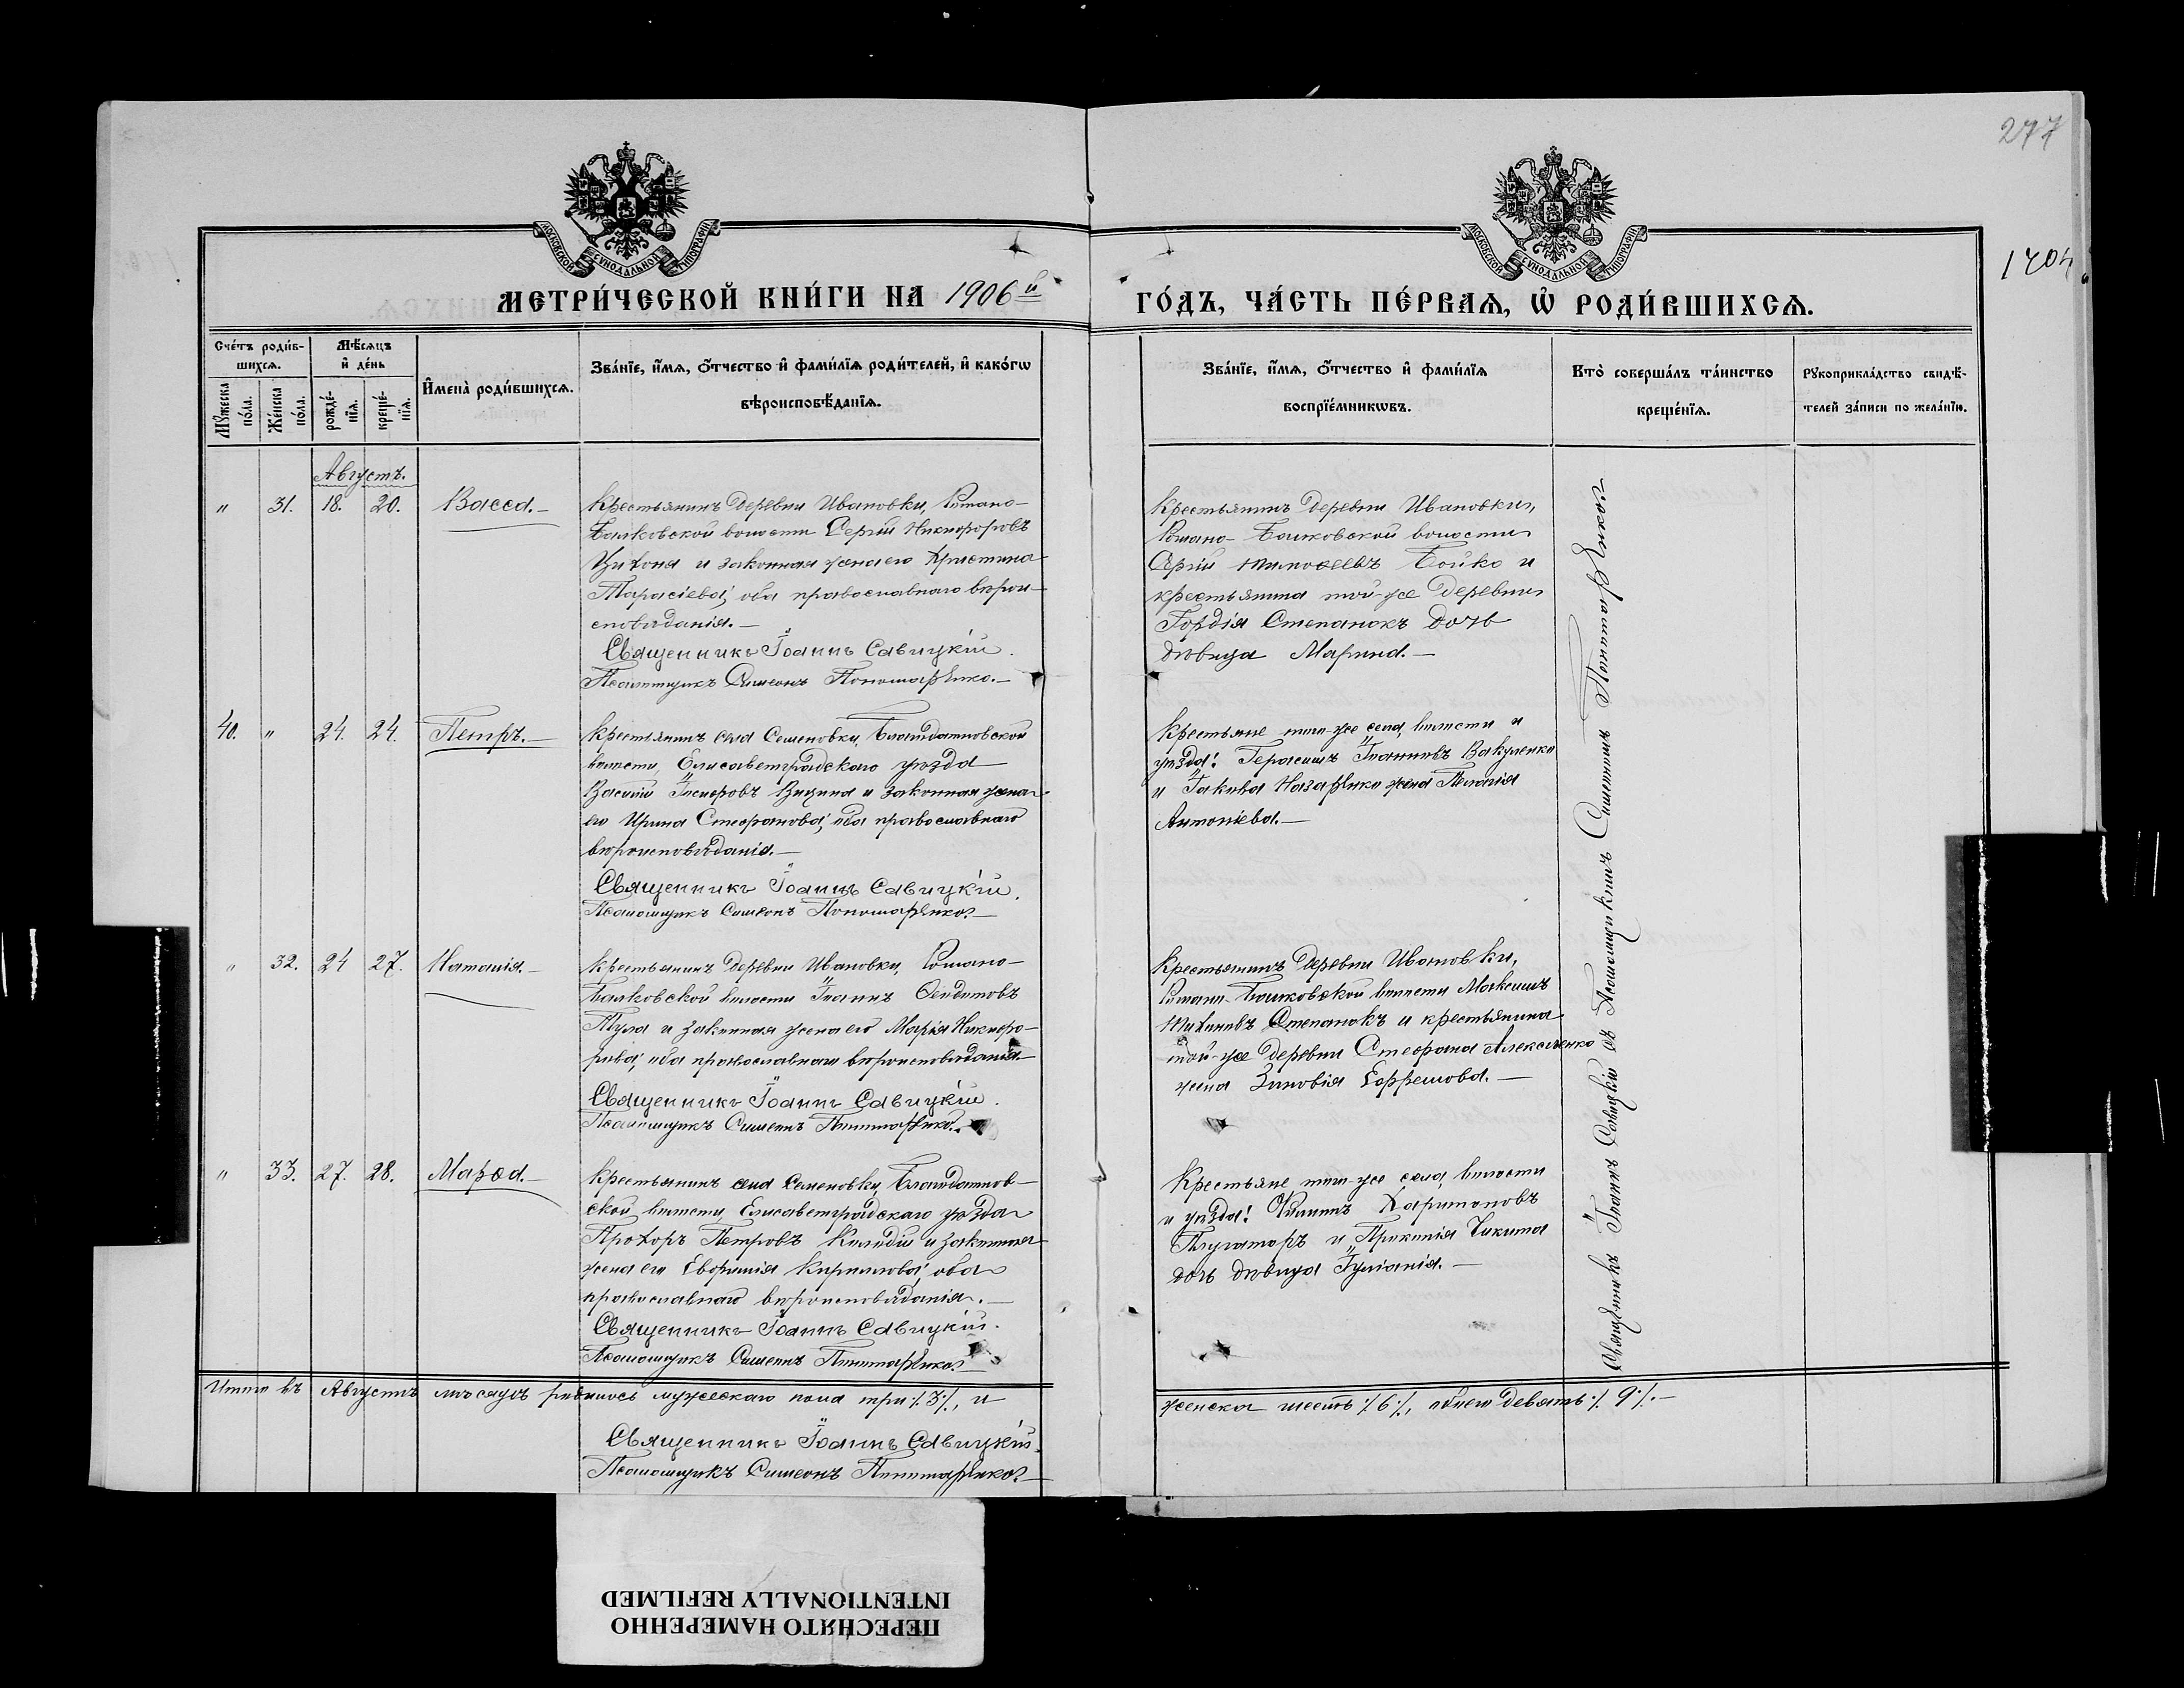 277
1704
МОСКОВСКОЙ СѴНОДАЛЬНОЙ ТИПОГРАФІИ
МОСКОВСКОЙ СѴНОДАЛЬНОЙ ТИПОГРАФІИ
МЕТРИ́ЧЕСКОЙ КНИ́ГИ НА 1906й
ГО́ДЪ, ЧА́СТЬ ПЕ́РВАѦ, Ѽ РОДИ́ВШИХСѦ.
Сче́тъ роди́в-
шихсѧ.
Мѣ́сѧцъ
и҆ де́нь
Мꙋ́жеска
по́ла.
Же́нска
по́ла.
рожде́-
нїѧ.
креще́-
нїѧ.
И҆мена̀ роди́вшихсѧ.
Зва́нїе, и҆́мѧ, ѻ҆́тчество и҆ фами́лїѧ роди́телей, и҆ како́гѡ
вѣроисповѣ́данїѧ.
Зва́нїе, и҆́мѧ, ѻ҆́тчество и҆ фами́лїѧ
воспрїе́мникѡвъ.
Кто̀ соверша́лъ та́инство
креще́нїѧ.
Рꙋкоприкла́дство свидѣ́-
телей за́писи по жела́нїю.
Августъ.
" 31. 18. 20. Васса.-
Крестьянинъ деревни Ивановки, Романо-
Балковской волости Сергій Никифоровъ
и законная жена его Христина
Тарасіева, оба православнаго вѣрои-
сповѣданія.-
Священникъ Іоаннъ Савицкій.
Псаломщикъ Симеонъ Пономаренко.-
Крестьянинъ деревни Ивановки,
Романо-Балковской волости
Сергій Тимоѳеевъ Бойко и
крестьянина той-же деревни
Гордія Степанокъ дочь
дѣвица Марина.-
40. " 24. 24. Петръ.-
Крестьянинъ села Семеновки, Благодатновской
волости, Елисаветградскаго уѣзда
Василій Вицина и законная жена
его Ирина Стефанова, оба православнаго
вѣроисповѣданія.-
Священникъ Іоаннъ Савицкій.
Псаломщикъ Симеонъ Пономаренко.-
Крестьяне того-же села, волости и
уѣзда: Герасимъ Іоанновъ Вакуленко
и Іакова Назаренко жена Пелагія
Антоніева.-
" 32. 24 27. Наталія.-
Крестьянинъ деревни Ивановки, Романо-
Балковской волости Іоаннъ
и законная жена его Марія Никифо-
рова, оба православнаго вѣроисповѣданія
Священникъ Іоаннъ Савицкій.
Псаломщикъ Симеонъ Пономаренко.-
Крестьянинъ деревни Ивановки,
Романо-Балковской волости Максимъ
Тихоновъ Степанокъ и крестьянина
той-же деревни Стефана Алексѣенко
жена Зиновія Ефремова.-
" 33. 27. 28. Марѳа.-
Крестьянинъ села Семеновки, Благодатнов-
ской волости, Елисаветградскаго уѣзда
Прохоръ Петровъ и законная
жена его Евфимія Кириллова, оба
православнаго вѣроисповѣданія.-
Священникъ Іоаннъ Савицкій.
Псаломщикъ Симеонъ Пономаренко.-
Крестьяне того-же села, волости
и уѣзда: Филиппъ Харитоновъ
Плугаторъ и Прокопія Чикита
дочь дѣвица Іуліанія.-
Священникъ Іоаннъ Савицкій съ Псаломщикомъ Симеономъ Пономаренкой.-
Итого въ Августѣ мѣсяцѣ родилось мужескаго пола три ·/.3·/., и
женска шесть ·/.6·/., обоего девять ·/.9·/.-
Священникъ Іоаннъ Савицкій.
Псаломщикъ Симеонъ Пономаренко.-
ПЕРЕСНЯТО НАМЕРЕННО
INTENTIONALLY REFILMED